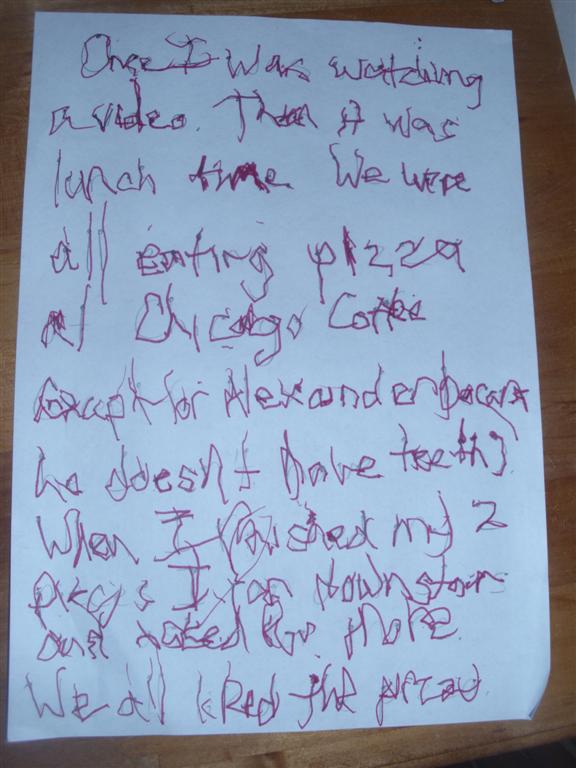 Once I was watching
a video. Then it was
lunch time We were
all eating pizza
at Chicago Coffee
Except for Alexander
he doesn't have teeth)
When I finished my 2
I ran downstairs
and for more.
We all liked the pizza.